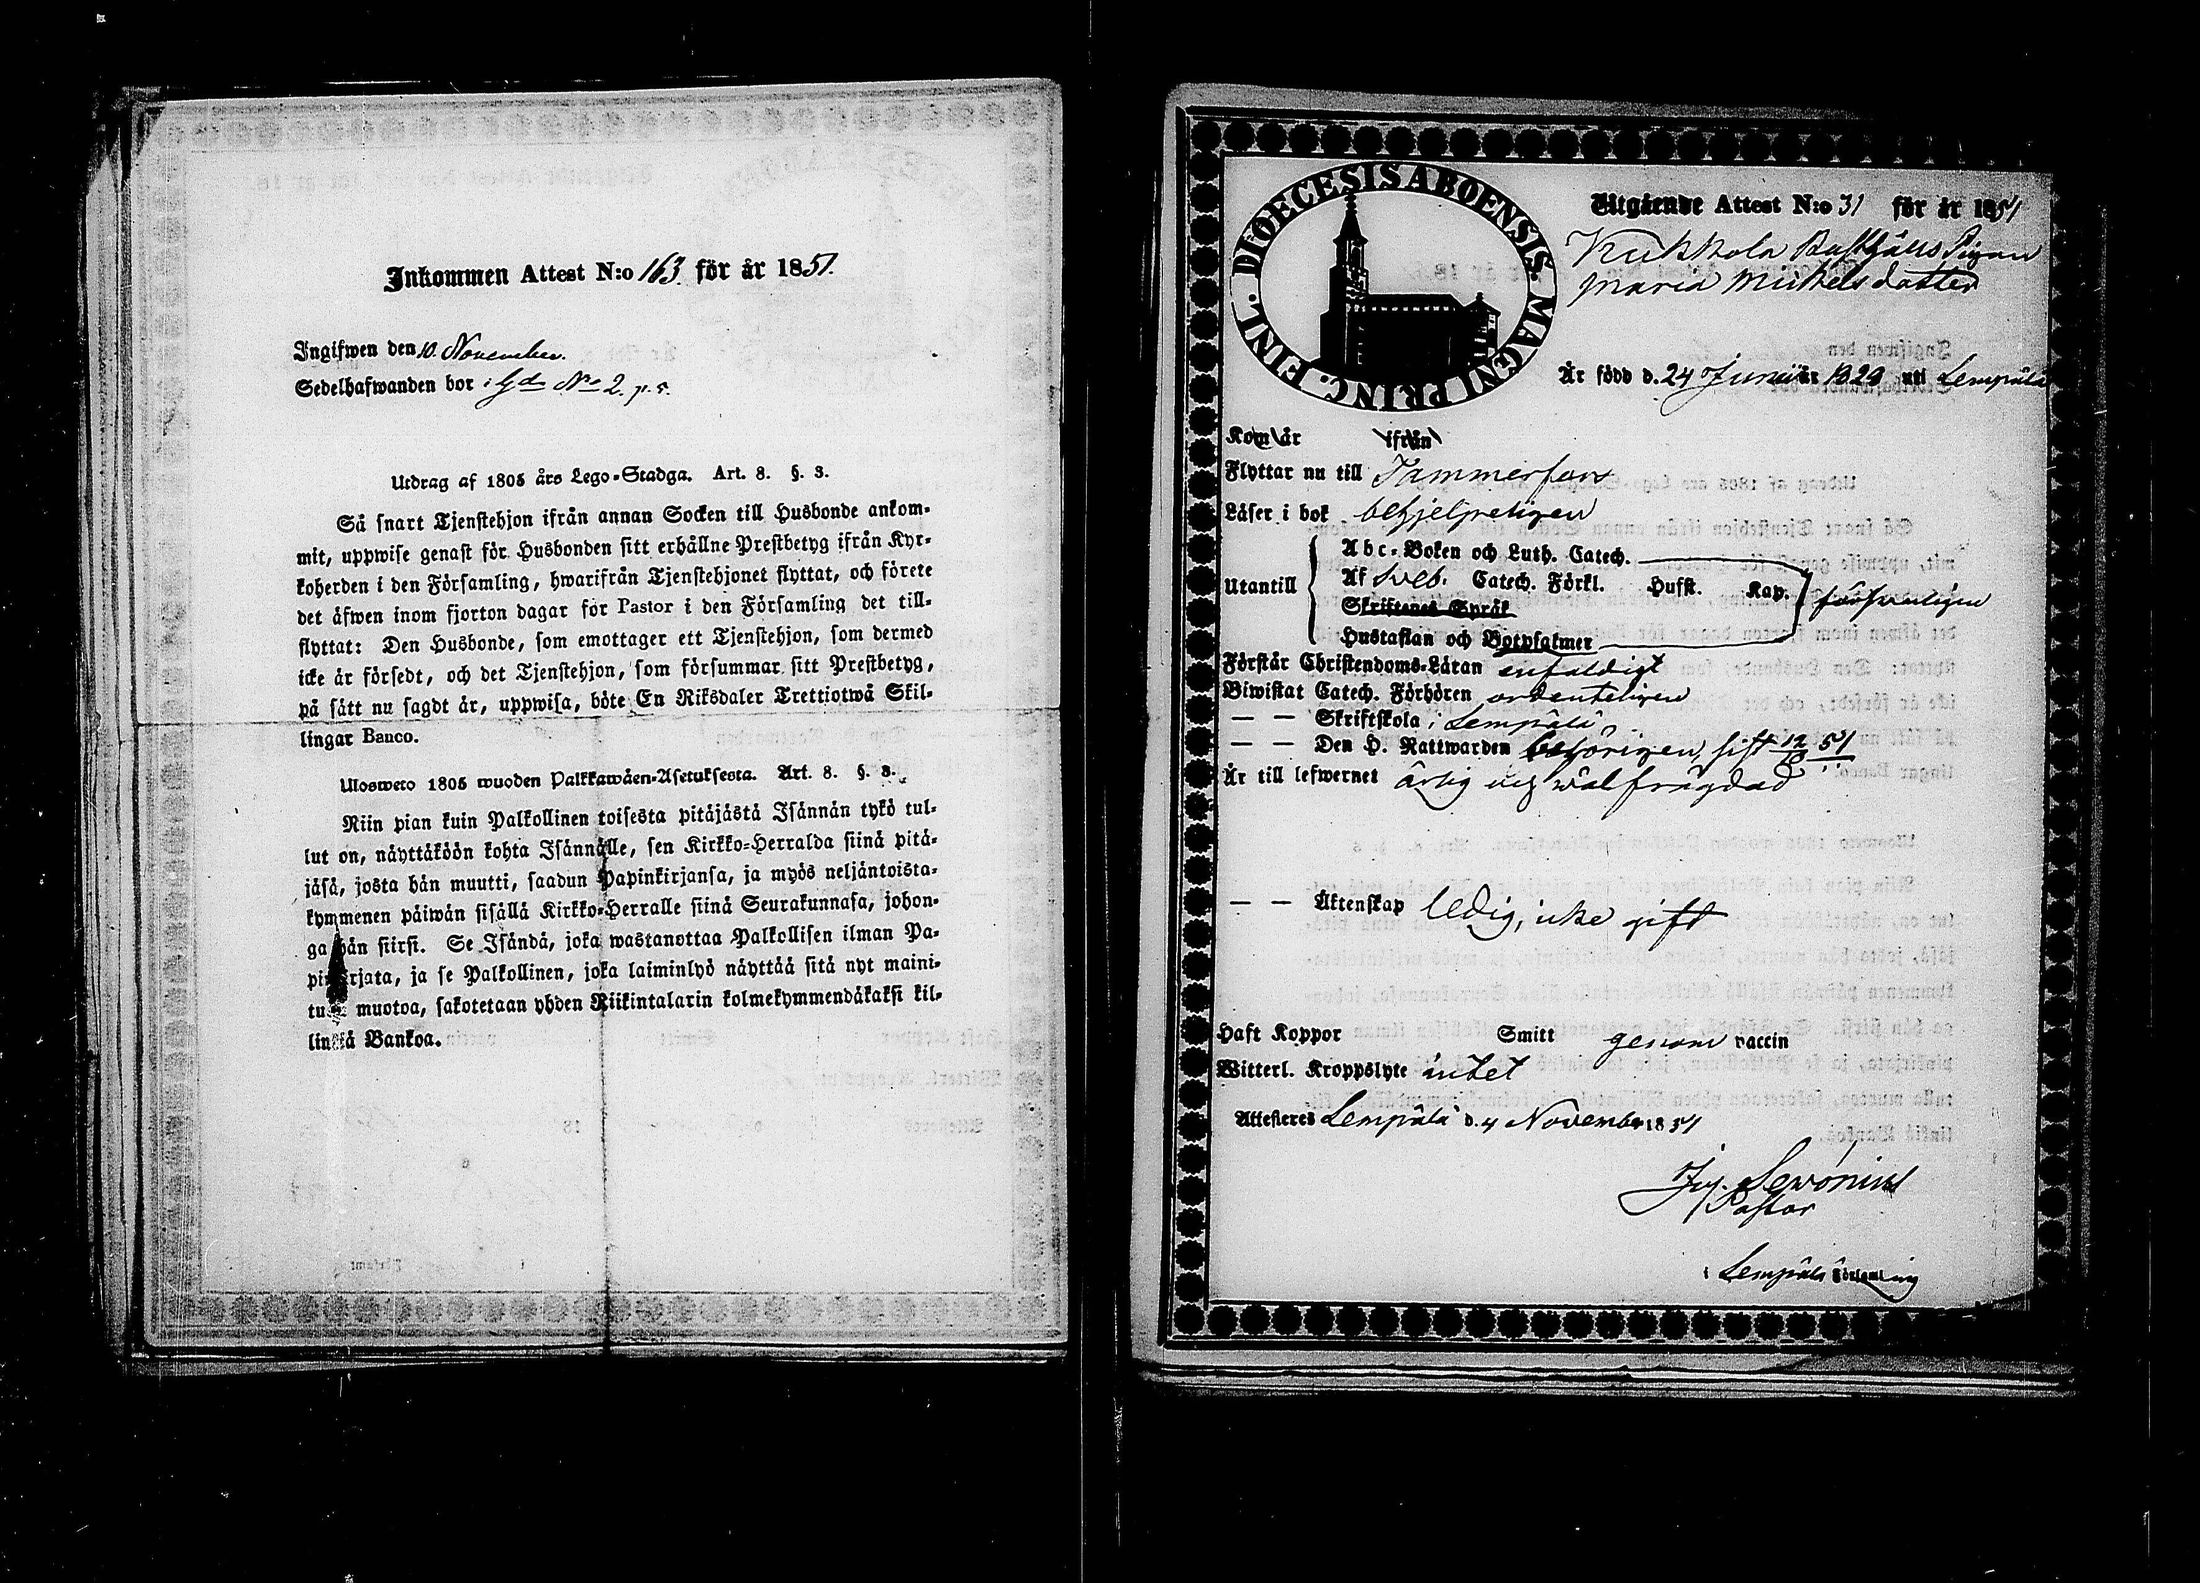 Inkommen Attest N:o 163. för år 1851.
Ingifwen den 10. November.
Sedelhafwanden bor i Gd No 2. p. 5.
Utdrag af 1805 års Lego-Stadga. Art. 8. §. 3.
Så snart Tjenstehjon ifrån annan Socken till Husbonde ankom-
mit, uppwise genast för Husbonden sitt erhållne Prestbetyg ifrån Kyr-
koherden i den Församling, hwarifrån Tjenstehjonet flyttat, och förete
det äfwen inom fjorton dagar för Pastor i den Församling det till-
flyttat: Den Husbonde, som emottager ett Tjenstehjon, som dermed
icke är försedt, och det Tjenstehjon, som försummar sitt Prestbetyg,
på sätt nu sagdt är, uppwisa, böte En Riksdaler Trettiotwå Skil-
lingar Banco.
Ulosweto 1805 wuoden Palkkawäen-Asetuksesta. Art. 8. §. 3.
Niin pian kuin Palkollinen toisesta pitäjästä Isännän tykö tul-
lut on, näyttäköön kohta Isännälle, sen Kirkko-Herralda siinä pitä-
jäsä, josta hän muutti, saadun Papinkirjansa, ja myös neljäntoista-
kymmenen päiwän sisällä Kirkko-Herralle siinä Seurakunnasa, johon-
ga hän siirsi. Se Isändä, joka wastanottaa Palkollisen ilman Pa-
pinkirjata, ja se Palkollinen, joka laiminlyö näyttää sitä nyt maini-
tulla muotoa, sakotetaan yhden Riikintalarin kolmekymmendäkaksi kil-
lingiä Bankoa.
DIOECESIS ABOENSIS. MAGNI PRINC. FINL.
Utgående Attest N:o 31 för år 1851
Kukkola Pigan
Maria Michelsdotter
Är född d. 24 Junii år 1829 uti Lempälä
Kom år ifrån
Flyttar nu till Tammerfors
Läser i bok behjelpeligen
Abc-Boken och Luth. Catech.
Utantill Af Sveb. Catech. Förkl. Husst. Kap. försvarligen
Skriftenes Språk
Hustaflan och Botpsalmer
Förstår Christendoms-Läran enfaldigt
Biwistat Catech. Förhören ordenteligen
— — Skriftskola i Lempälä
— — Den H. Nattwarden behörigen, sist 12/10 51
Är till lefwernet ärlig och wälfrägdad
— — Äktenskap ledig, icke gift
Haft Koppor Smitt genom vaccin
Witterl. Kroppslyte intet
Attesteras Lempälä d. 4 November 1851
Pastor
i Lempälä Församling